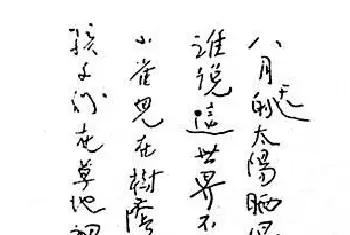 八月天的太陽晒
誰說這世界不
小雀兒在樹蔭
孩子們在草地